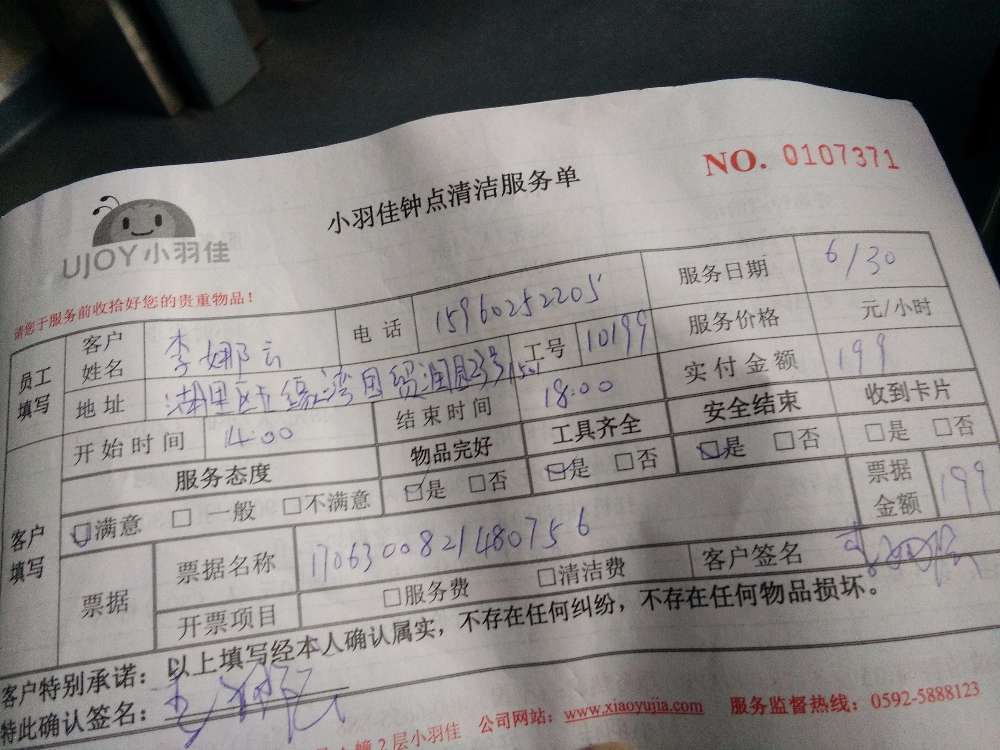 NO. 0107371
小羽佳钟点清洁服务单
UJOY小羽佳
请您于服务前收拾好您的贵重物品！
员工填写 客户姓名 李娜云 电话 15960252205 服务日期 6/30
地址 湖里区 缘湾国贸润园23号1501 工号 10199 服务价格 元/小时
开始时间 14:00 结束时间 18:00 实付金额 199
客户填写 服务态度 物品完好 工具齐全 安全结束 收到卡片
□满意 □一般 □不满意 □是 □否 □是 □否 □是 □否 □是 □否
票据 票据名称 1706300821480756 票据金额 199
开票项目 □服务费 □清洁费 客户签名
客户特别承诺：以上填写经本人确认属实，不存在任何纠纷，不存在任何物品损坏。
特此确认签名：
幢2层小羽佳 公司网站：www.xiaoyujia.com 服务监督热线：0592-5888123